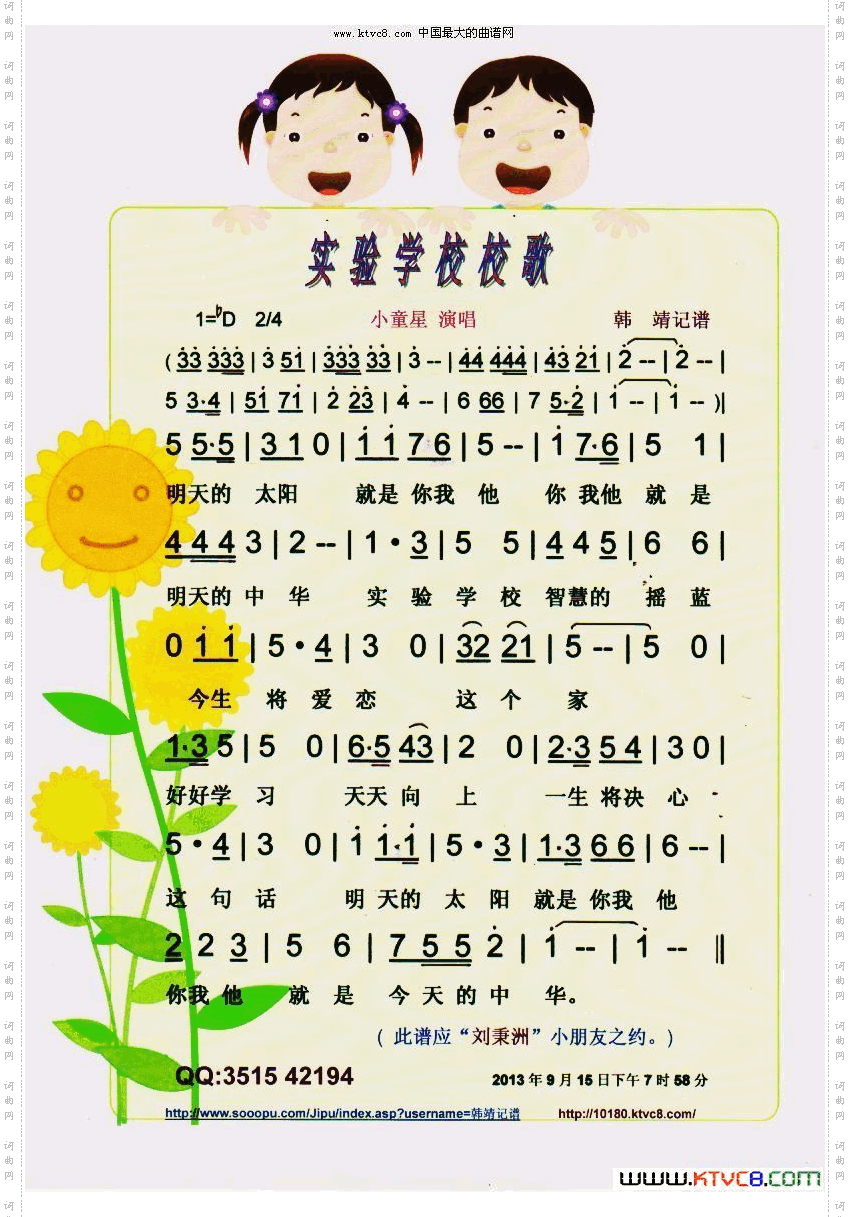 www.ktvc8.com 中国最大的曲谱网
实验学校校歌
1=♭D 2/4 小童星 演唱 韩 靖记谱
( 33 333 | 3 51 | 333 33 | 3 -- | 44 444 | 43 21 | 2 -- | 2 -- |
5 3·4 | 51 71 | 2 23 | 4 -- | 6 66 | 7 5·2 | 1 -- | 1 -- )|
5 5·5 | 3 1 0 | 1 1 7 6 | 5 -- | 1 7·6 | 5 1 |
明天的 太阳 就是 你我 他 你 我他 就 是
4 4 4 3 | 2 -- | 1 · 3 | 5 5 | 4 4 5 | 6 6 |
明天的 中 华 实 验 学 校 智慧的 摇 蓝
0 1 1 | 5 · 4 | 3 0 | 32 21 | 5 -- | 5 0 |
今生 将 爱 恋 这 个 家
1·3 5 | 5 0 | 6·5 43 | 2 0 | 2·3 5 4 | 3 0 |
好好学 习 天天 向 上 一生 将决 心
5 · 4 | 3 0 | 1 1·1 | 5 · 3 | 1·3 6 6 | 6 -- |
这 句 话 明 天的 太 阳 就是 你我 他
2 2 3 | 5 6 | 7 5 5 2 | 1 -- | 1 -- ‖
你我 他 就 是 今 天 的 中 华。
( 此谱应“刘秉洲”小朋友之约。)
QQ:3515 42194 2013 年 9 月 15 日下午 7 时 58 分
http://www.sooopu.com/Jipu/index.asp?username=韩靖记谱 http://10180.ktvc8.com/
www.KTVC8.COM